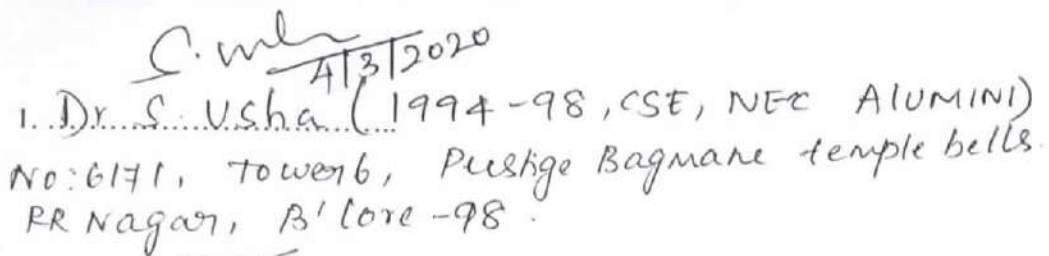 4/3/2020
1. Dr. S. Usha (1994-98, CSE, NEC AlUMINI)
No: 6171, Tower6, Prestige Bagmane temple bells.
RR Nagar, B'lore -98.